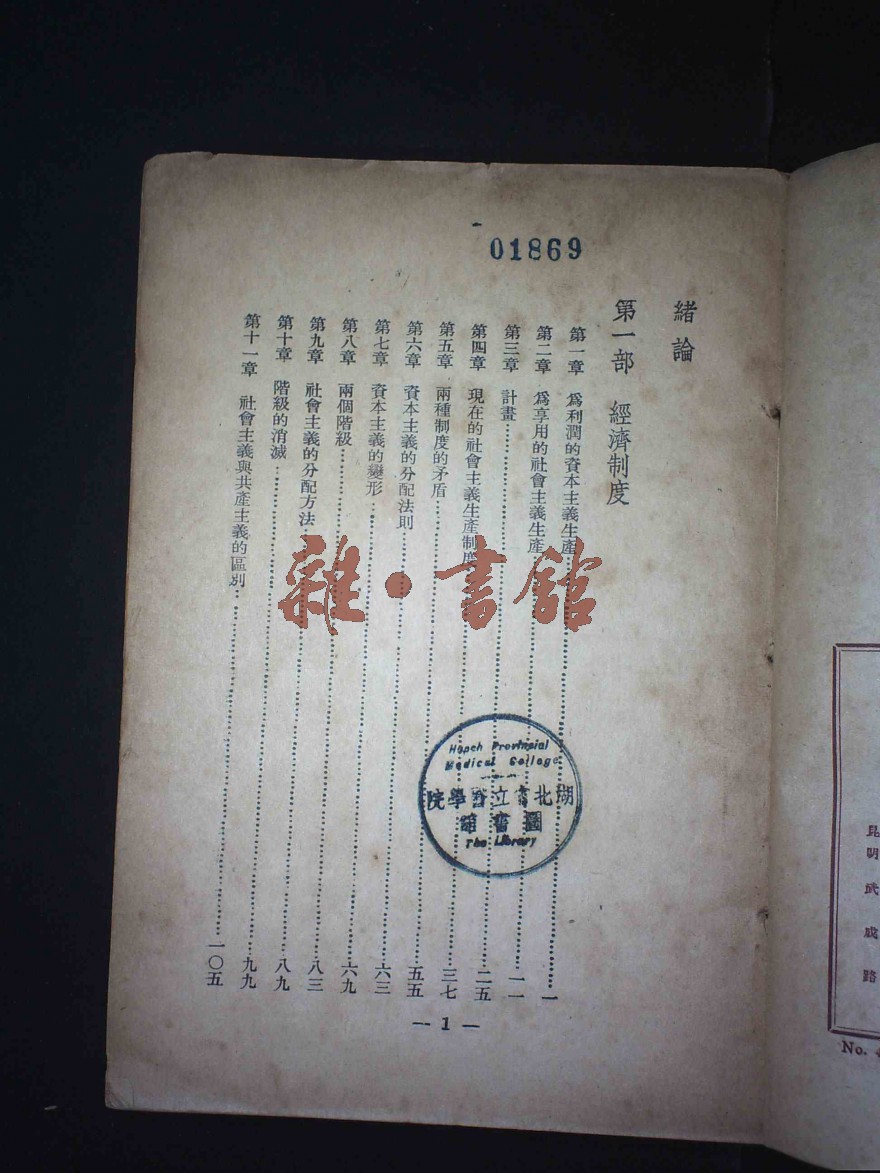 01869
緒論
第一部 經濟制度
第一章 爲利潤的資本主義生產……一
第二章 爲享用的社會主義生產……一一
第三章 計畫……二五
第四章 現在的社會主義生產制度……三七
第五章 兩種制度的矛盾……五五
第六章 資本主義的分配法則……六三
第七章 資本主義的變形……六九
第八章 兩個階級……八三
第九章 社會主義的分配方法……八九
第十章 階級的消滅……九九
第十一章 社會主義與共產主義的區別……一〇五
— 1 —
雜·書館
Hupeh Provincial
Medical College
湖北省立醫學院
圖書館
The Library
昆明武成路
No.